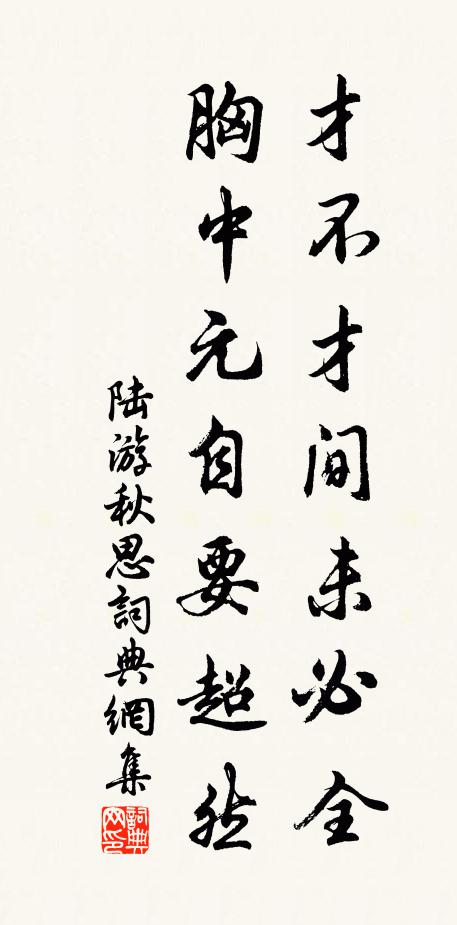 才不才间未必全
胸中元自要超然
陆游秋思詞典網集
詞典网印